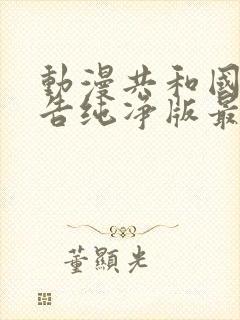 動漫共和國
告纯净版最
董顯光